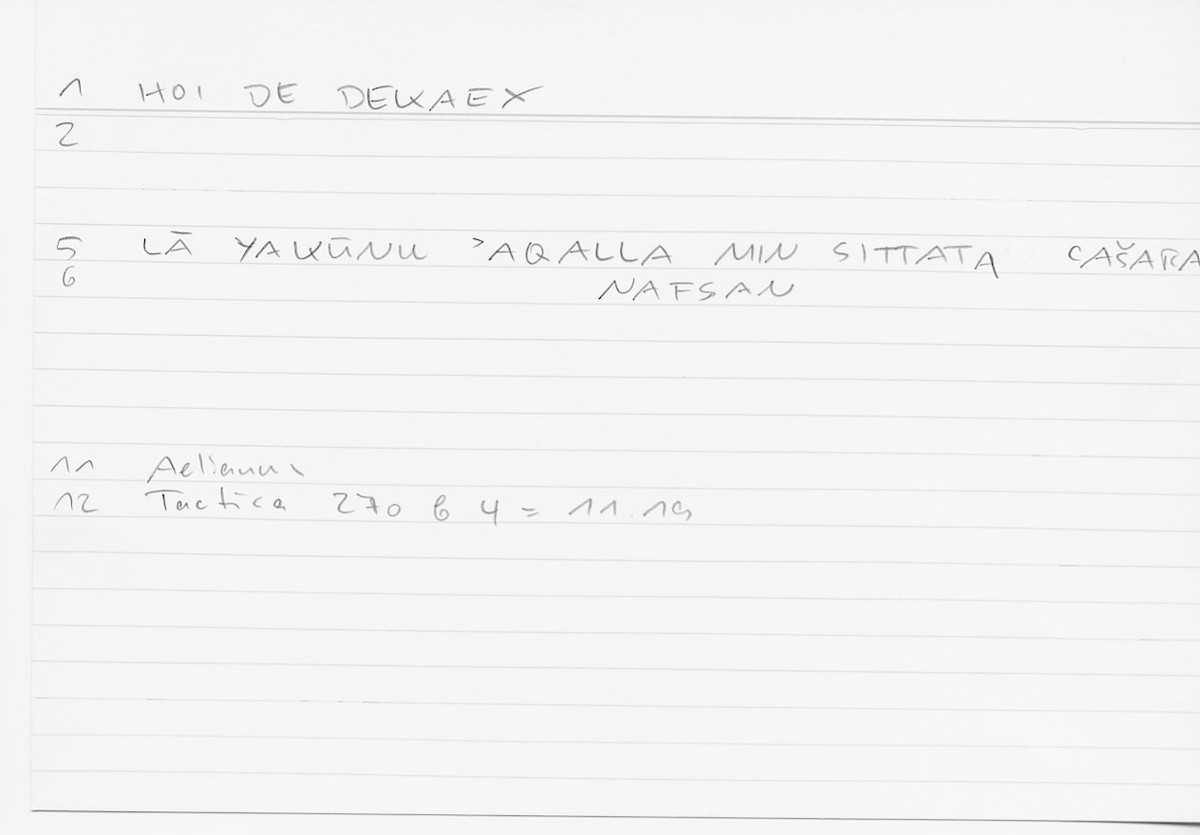 1 HOI DE DEKAEX
2
5 LĀ YAKŪNU ʾAQALLA MIN SITTATA CAŠARA
6 NAFSAN
11 Aelianus
12 Tactica 270 b 4 = 11.19